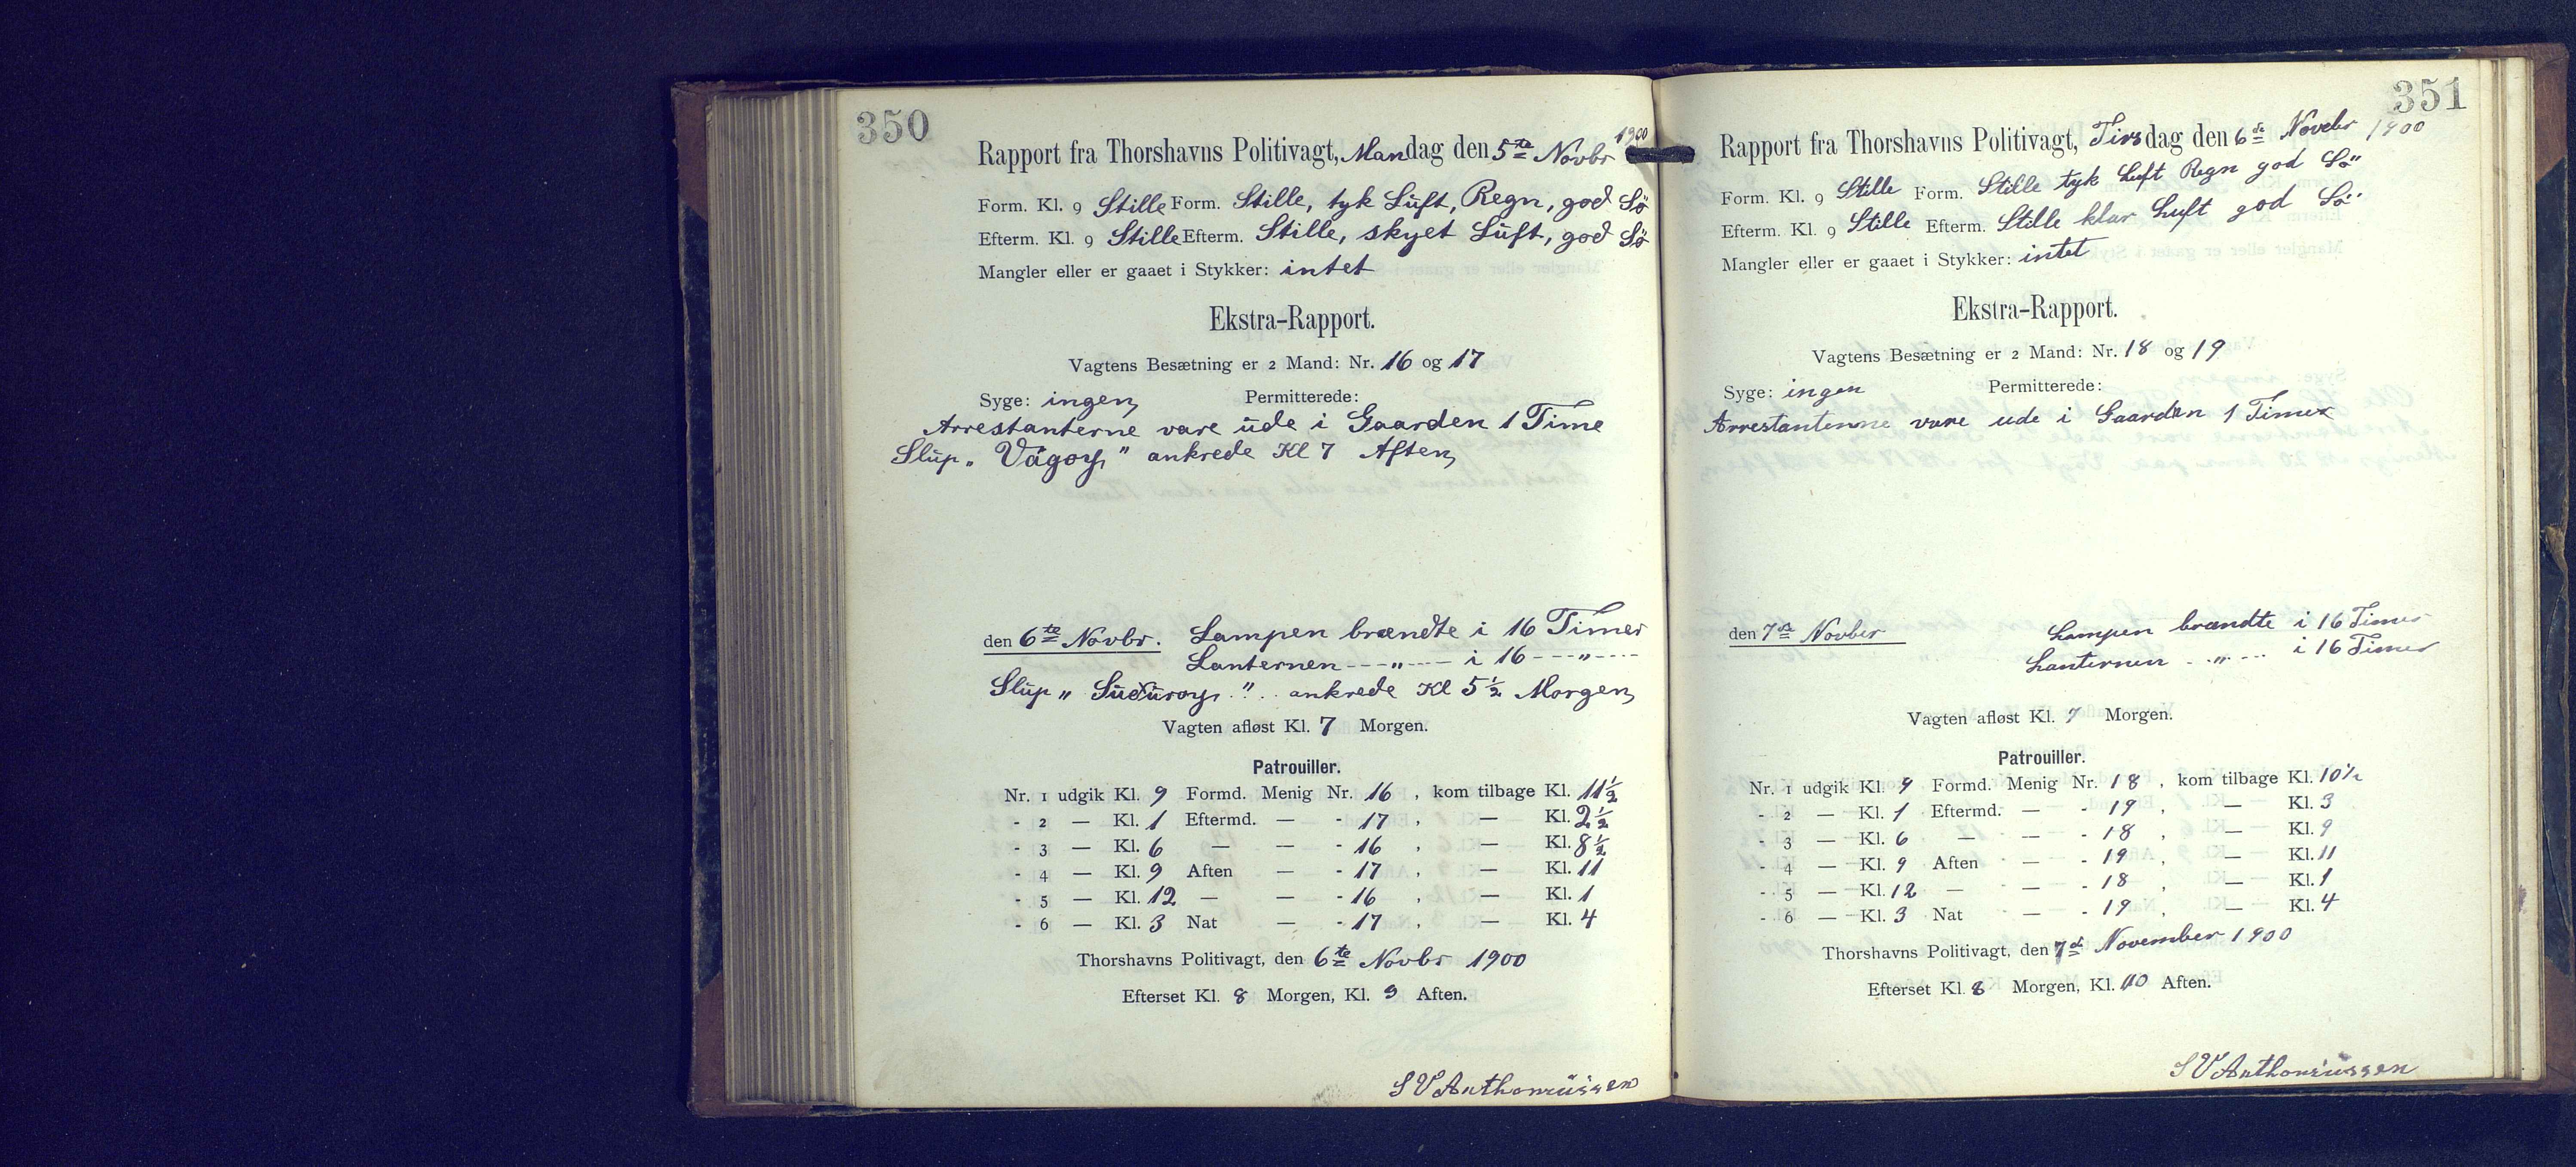 350
Rapport fra Thorshavns Politivagt, Mandag den 5te Novbr 1900
Form. Kl. 9 Stille Form. Stille, tyk Luft, Regn, god Sø
Efterm. Kl. 9 Stille Efterm. Stille, skyet Luft, god Sø
Mangler eller er gaaet i Stykker: intet
Ekstra-Rapport.
Vagtens Besætning er 2 Mand: Nr. 16 og 17
Syge: ingen Permitterede:
Arrestanterne vare ude i Gaarden 1 Time
Slup „Vágoy" ankrede Kl 7 Aften
den 6te Novbr. Lampen brændte i 16 Timer
Lanternen --- „ --- i 16 --- „ ---
Slup „Suðuroy" ankrede Kl 5½ Morgen
Vagten afløst Kl. 7 Morgen.
Patrouiller.
Nr. 1 udgik Kl. 9 Formd. Menig Nr. 16 , kom tilbage Kl. 11½
- 2 — Kl. 1 Eftermd. — - 17 , — Kl. 2½
- 3 — Kl. 6 — — - 16 , — Kl. 8½
- 4 — Kl. 9 Aften — - 17 , — Kl. 11
- 5 — Kl. 12 — — - 16 , — Kl. 1
- 6 — Kl. 3 Nat — - 17 , — Kl. 4
Thorshavns Politivagt, den 6te Novbr 1900
Efterset Kl. 8 Morgen, Kl. 9 Aften.
S V Anthoniussen
351
Rapport fra Thorshavns Politivagt, Tirsdag den 6te Novebr 1900
Form. Kl. 9 Stille Form. Stille tyk Luft Regn god Sö
Efterm. Kl. 9 Stille Efterm. Stille klar Luft god Sö
Mangler eller er gaaet i Stykker: intet
Ekstra-Rapport.
Vagtens Besætning er 2 Mand: Nr. 18 og 19
Syge: ingen Permitterede:
Arrestanterne vare ude i Gaarden 1 Timer
den 7de Novber Lampen brændte i 16 Timer
Lanternen - „ --- i 16 Timer
Vagten afløst Kl. 7 Morgen.
Patrouiller.
Nr. 1 udgik Kl. 9 Formd. Menig Nr. 18 , kom tilbage Kl. 10½
- 2 — Kl. 1 Eftermd. — - 19 , — Kl. 3
- 3 — Kl. 6 — — - 18 , — Kl. 9
- 4 — Kl. 9 Aften — - 19 , — Kl. 11
- 5 — Kl. 12 — — - 18 , — Kl. 1
- 6 — Kl. 3 Nat — - 19 , — Kl. 4
Thorshavns Politivagt, den 7de November 1900
Efterset Kl. 8 Morgen, Kl. 10 Aften.
S V Anthoniussen